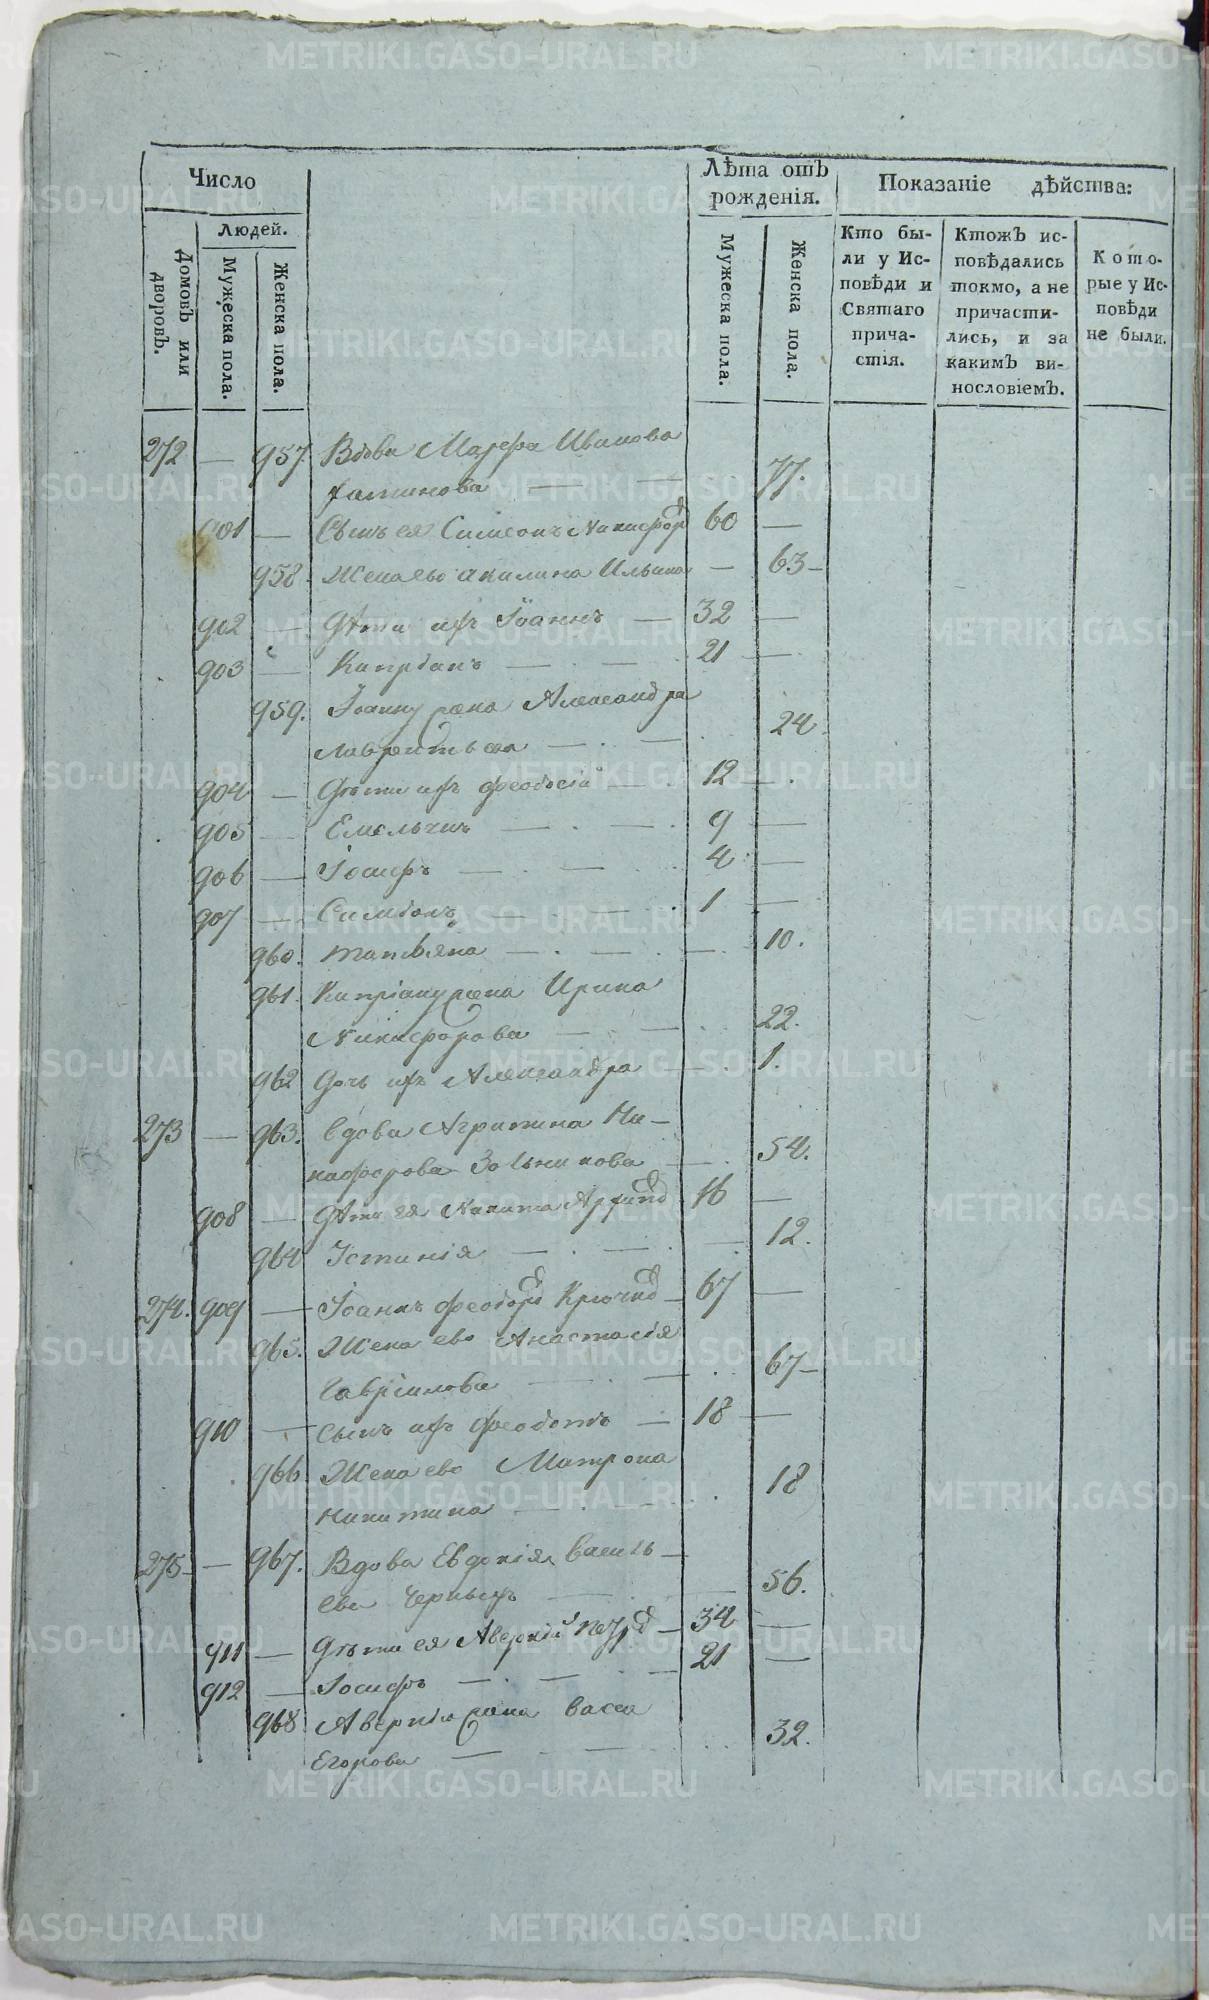 Число
Лѣта отъ рожденія.
Показаніе дѣйства:
Людей.
Домовъ или дворовъ.
Мужеска пола.
Женска пола.
Мужеска пола.
Женска пола.
Кто были у Исповѣди и Святаго причастія.
Ктожъ исповѣдались токмо, а не причастились, и за какимъ винословіемъ.
Которые у Исповѣди не были.
272 — 957. Вдова Иванова
77.
901 — Сынъ ея Симеонъ Никифоровъ 60 —
958. Жена ево Акилина Ильина — 63 —
902 — Дѣти ихъ Іоаннъ — 32 —
903 — Кипріанъ — 21 —
959. Іоанну жена Александра
Лаврентьева — 24.
904 — Дѣти ихъ Феодосій — 12 —
905 — Емельянъ — 9 —
906 — Іосифъ — 4 —
907 — Симеонъ — 1 —
960. татьяна — 10.
961. Кипріану жена Ирина
Никифорова — 22.
962 Дочь ихъ Александра — 1.
273 — 963. Вдова Агрипина Ни-
кифорова — 54.
908 — Дѣти ея Никита 16 —
964 Устинія — 12.
274. 909 — Іоаннъ Феодоровъ 67 —
965. Жена ево Анастасія
Гаврилова — 67 —
910 — Сынъ ихъ Феодотъ — 18 —
966 Жена ево Матрона
Никитина — 18
275 — 967. Вдова Евдокія Василь-
ева — 56.
911 — Дѣти ея Аверкій 34 —
912 — Іосифъ — 21 —
968 Аверкія жена Васса
Егорова — 32.
METRIKI.GASO-URAL.RU